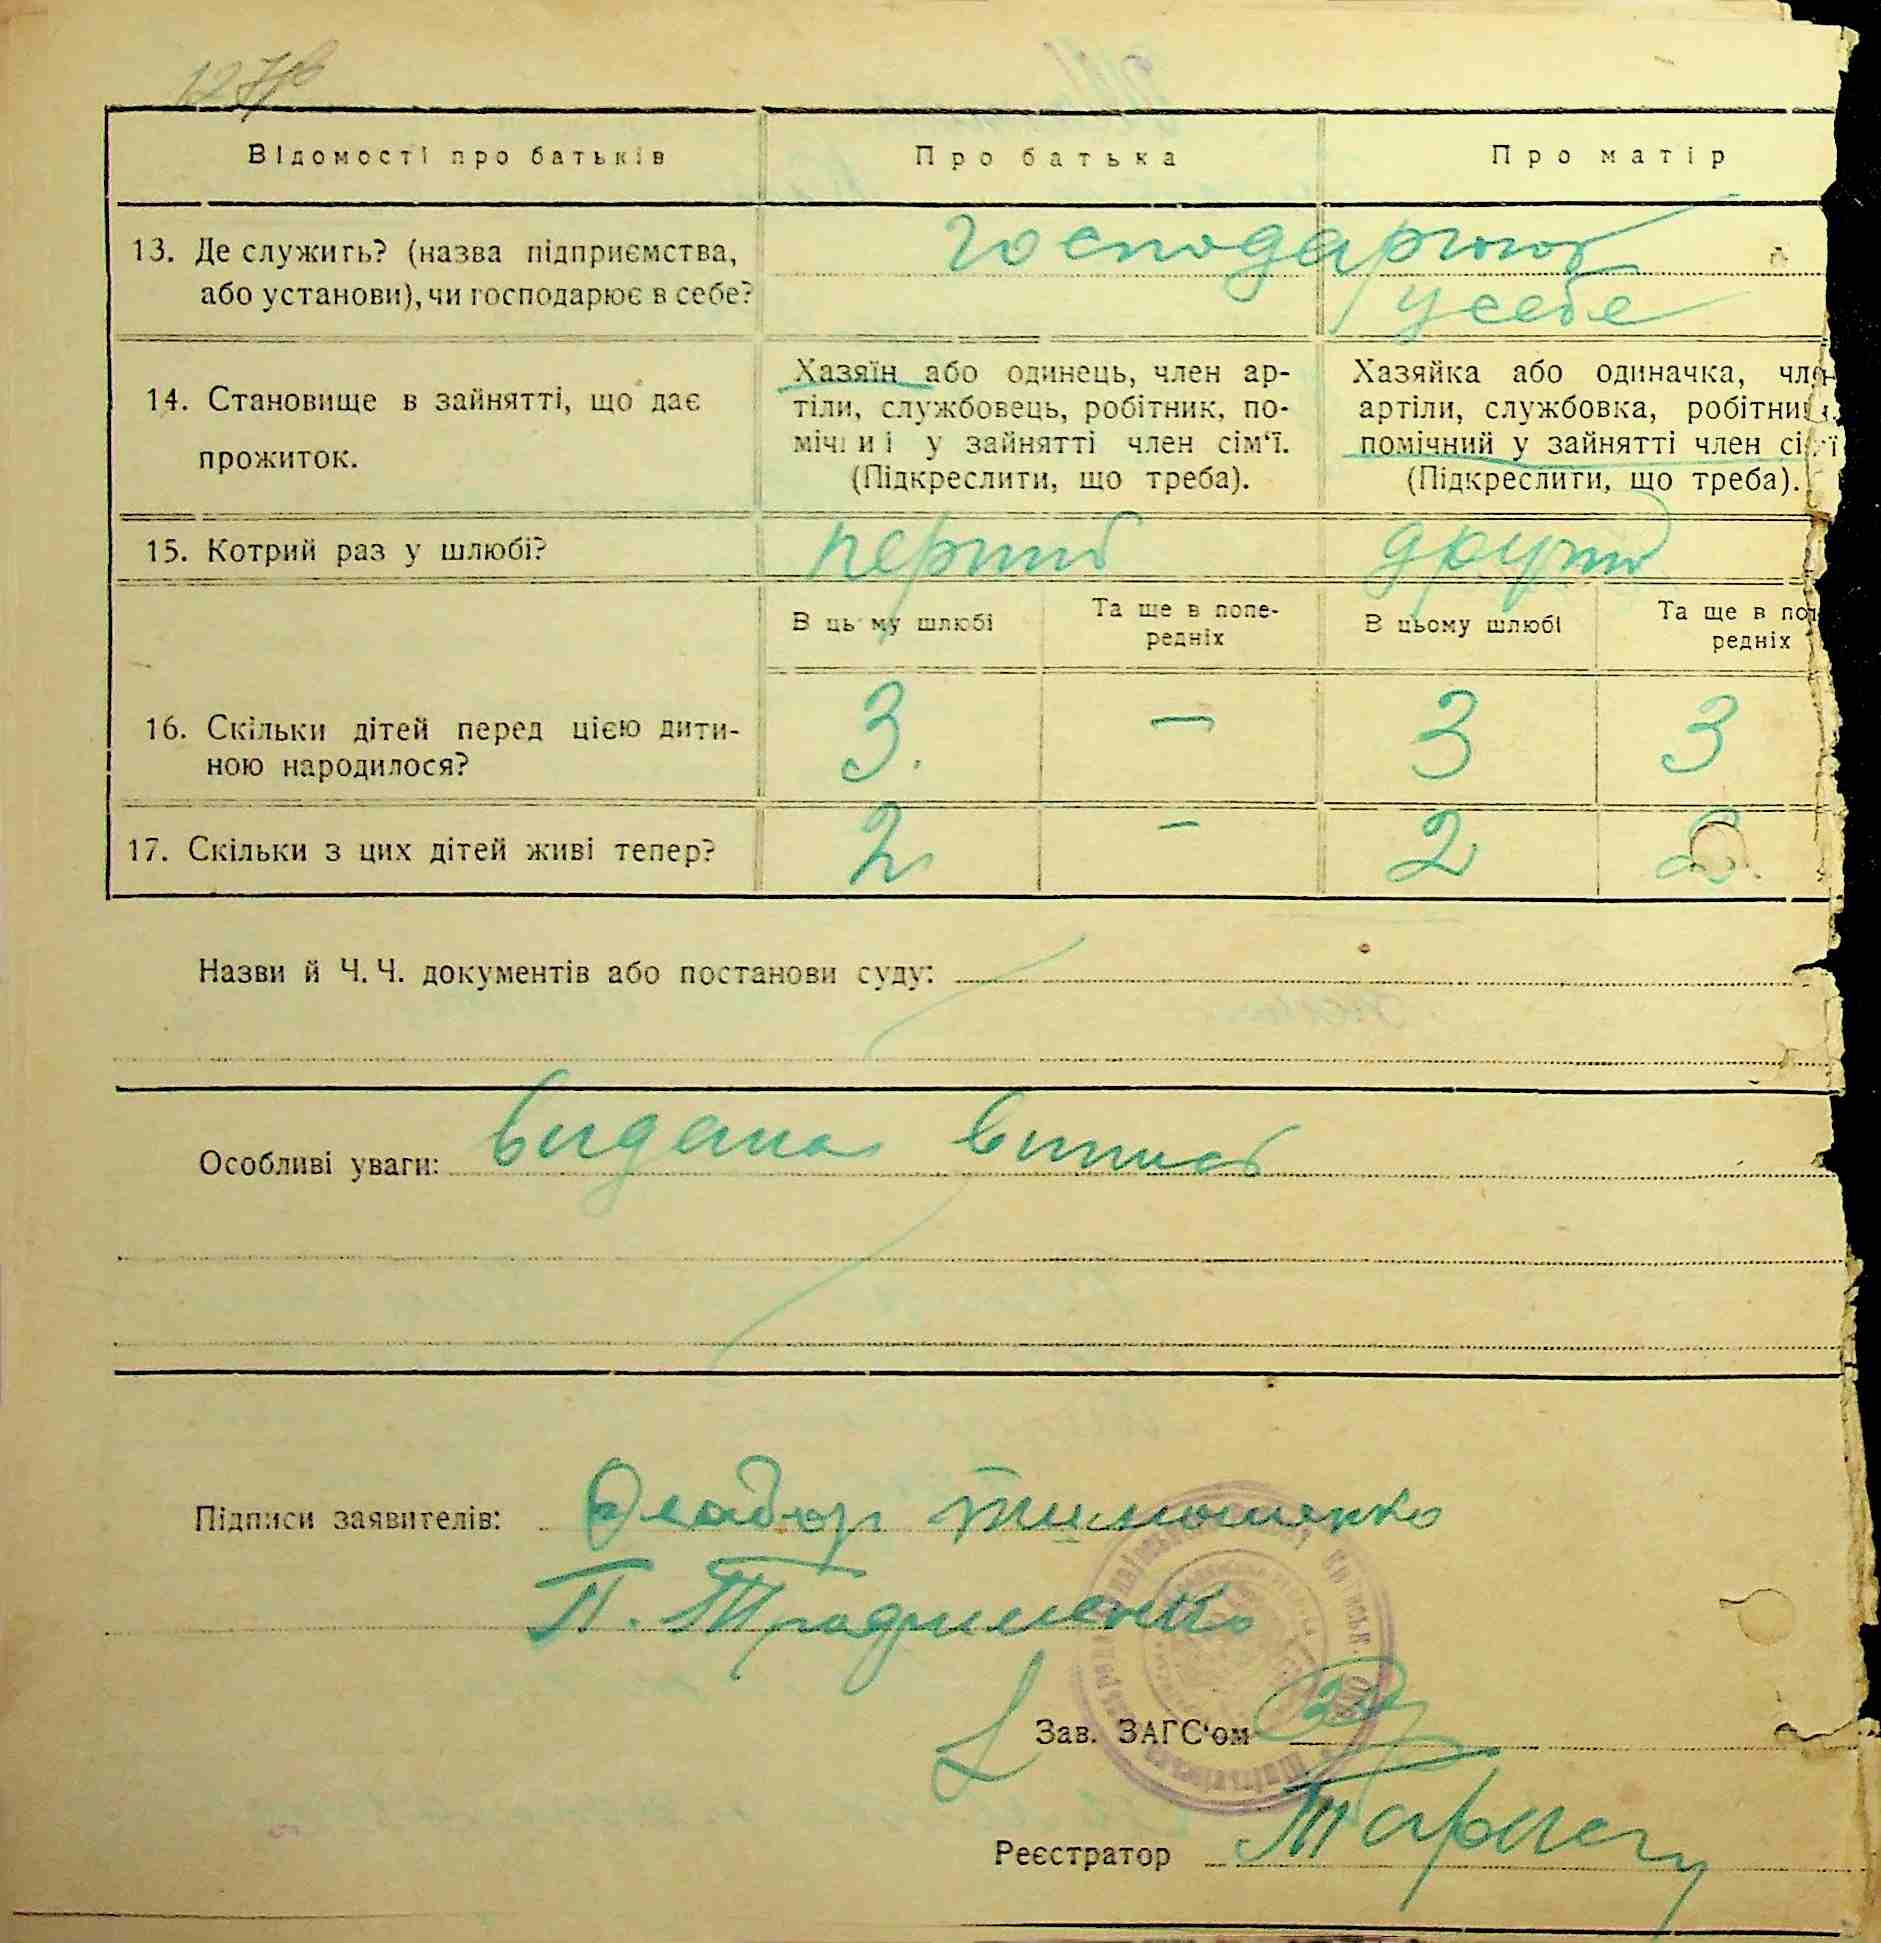 Відомості про батьків
Про батька
Про матір
13. Де служить? (назва підприємства,
або установи), чи господарює в себе?
господарюют
у себе
14. Становище в зайнятті, що дає
прожиток.
Хазяїн або одинець, член ар-
тіли, службовець, робітник, по-
у зайнятті член сім‘ї.
(Підкреслити, що треба).
Хазяйка або одиначка,
артіли, службовка,
помічний у зайнятті член
(Підкреслити, що треба).
15. Котрий раз у шлюбі?
перший
другий
В цьому шлюбі
Та ще в попе-
редніх
В цьому шлюбі
Та ще в
редніх
16. Скільки дітей перед цією дити-
ною народилося?
3. — 3 3
17. Скільки з цих дітей живі тепер?
2 — 2 2.
Назви й Ч. Ч. документів або постанови суду:
Особливі уваги: видана випись
Підписи заявителів: Тимошенко
П.
Зав. ЗАГС‘ом
Реєстратор